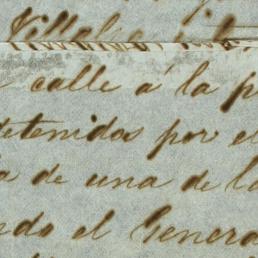 Villalva
calle á la p
detenidos por el
a de una de la
ndo el Genera